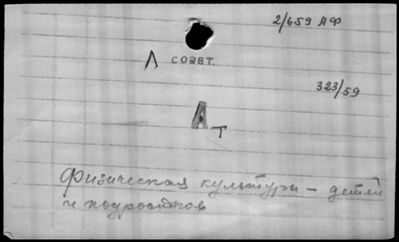 2/659 АФ
Л соавт.
323/59
А т
Физическая культура – детей
и подростков